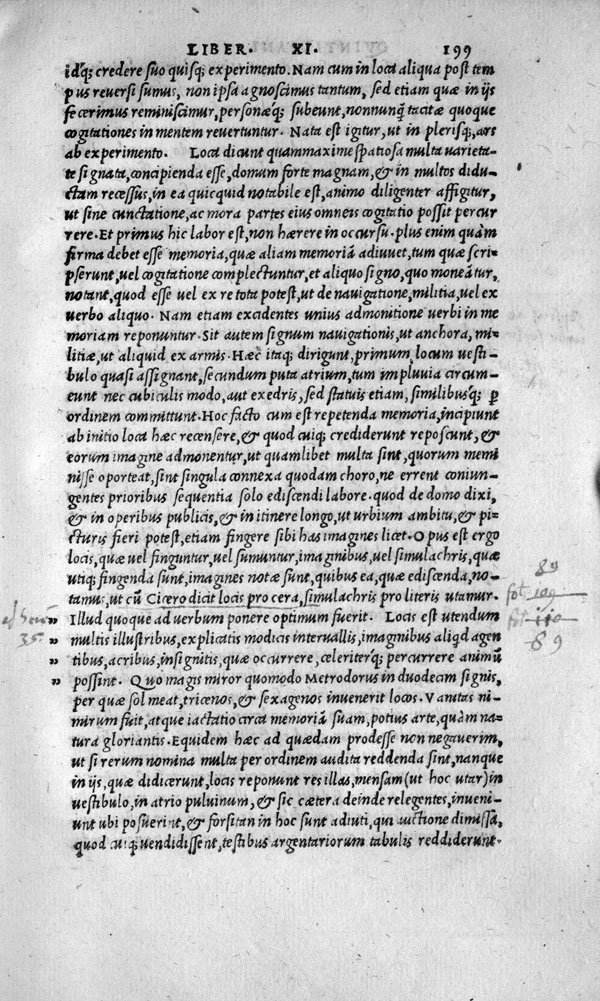 LIBER. XI. 199
idq; credere suo quisq; experimento. Nam cum in loca aliqua post tem
pus reversi sumus, non ipsa agnoscimus tantum, sed etiam quæ in ijs
fecerimus reminiscimur, personæq; subeunt, nonnunq̃ tacitæ quoque
cogitationes in mentem revertuntur. Nata est igitur, ut in plerisq;, ars
ab experimento. Loca dicunt quammaxime spatiosa multa varieta-
te signata, concipienda esse, domum forte magnam, & in multos didu-
ctam recessus, in ea quicquid notabile est, animo diligenter affigitur,
ut sine cunctatione, ac mora partes eius omneis cogitatio possit percur
rere. Et primus hic labor est, non hærere in occursu. plus enim quàm
firma debet esse memoria, quæ aliam memoriã adiuvet, tum quæ scri-
pserunt, vel cogitatione complectuntur, et aliquo signo, quo moneãtur,
notant, quod esse vel ex re tota potest, ut de navigatione, militia, vel ex
verbo aliquo. Nam etiam excidentes unius admonitione verbi in me
moriam reponuntur. Sit autem signum navigationis, ut anchora, mi-
litiæ, ut aliquid ex armis. Hæc itaq; dirigunt, primum, locum vesti-
bulo quasi assignant, secundum puta atrium, tum impluvia circum-
eunt nec cubiculis modo, aut exedris, sed statuis etiam, similibusq; ꝑ
ordinem committunt. Hoc facto cum est repetenda memoria, incipiunt
ab initio loca hæc recensere, & quod cuiq; crediderunt reposcunt, &
eorum imagine admonentur, ut quamlibet multa sint, quorum memi
nisse oporteat, sint singula connexa quodam choro, ne errent coniun-
gentes prioribus sequentia solo ediscendi labore. quod de domo dixi,
& in operibus publicis, & in itinere longo, ut urbium ambitu, & pi-
cturis fieri potest, etiam fingere sibi has imagines licet. Opus est ergo
locis, quæ vel finguntur, vel sumuntur, imaginibus, vel simulachris, quæ
utiq; fingenda sunt, imagines notæ sunt, quibus ea, quæ ediscenda, no-
tamus, ut cũ Cicero dicit locis pro cera, simulachris pro literis utamur.
Illud quoque ad verbum ponere optimum fuerit. Locis est utendum
multis illustribus, explicatis modicis intervallis, imaginibus aliqd agen
tibus, acribus, insignitis, quæ occurrere, celeriterq; percurrere animũ
possint. Quo magis miror quomodo Metrodorus in duodecim signis,
per quæ sol meat, tricenos, & sexagenos invenerit locos. Vanitas ni-
mirum fuit, atque iactatio circa memoriã suam, potius arte, quàm na-
tura gloriantis. Equidem hæc ad quædam prodesse non negaverim,
ut si rerum nomina multa per ordinem audita reddenda sint, nanque
in ijs, quæ didicerunt, locis reponunt res illas, mensam (ut hoc utar) in
vestibulo, in atrio pulvinum, & sic cætera deinde relegentes, inveni-
unt ubi posuerint, & forsitan in hoc sunt adiuti, qui auctione dimissã,
quod cuiq; vendidissent, testibus argentariorum tabulis reddiderunt.
89
89
35.